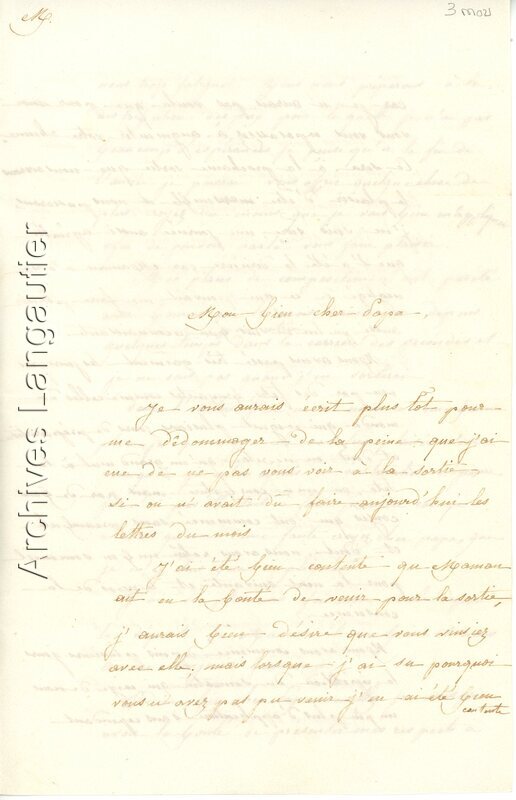 M.
3 mai
Archives Langautier
Mon bien cher Papa,
Je vous aurais écrit plus tôt pour
me dédommager de la peine que j'ai
eue de ne pas vous voir à la sortie
si on n'avait dû faire aujourd'hui les
lettres du mois
J'ai été bien contente que Maman
ait eu la bonté de venir pour la sortie,
j'aurais bien désiré que vous vinssiez
avec elle, mais lorsque j'ai su pourquoi
vous n'avez pas pu venir j'en ai été bien
contente